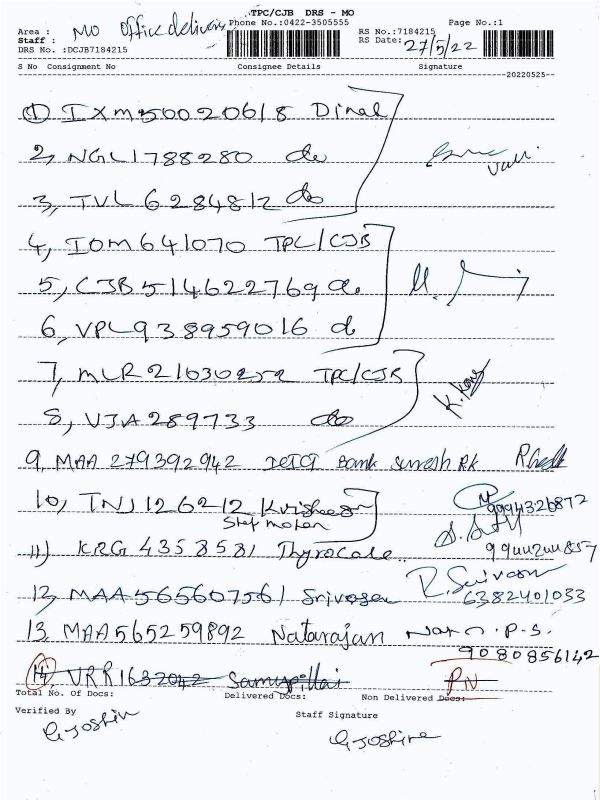 TPC/CJB DRS - MO
Area : MO Office delivery Phone No.:0422-3505555 Page No.:1
Staff : RS No.:7184215
DRS No. :DCJB7184215 RS Date: 27/5/22
S No Consignment No Consignee Details Signature
20220525
① IXM50020618 Dinal
2, NGL1788280 do
3, TVL 6284812 do
4, IOM641070 TPC/CJB
5, CJB 514622769 do
6, VPL938959016 do
7, MLR21030252 TPC/CJB
8, VJA289733 do
9, MAA 279392942 ICICI Bank Suresh RK
10, TNJ126212 Krisheeson
9994326872
11) KRG 4358581 Thyrocare
9944244857
12, MAA565607561 Srivasan R. Srivasan
6382401033
13. MAA565259892 Natarajan Nata. P.S.
9080856142
14, VRR1632042 Samypillai PN
Total No. Of Docs: Delivered Docs: Non Delivered Docs:
Verified By Staff Signature
G Joshin G Joshine